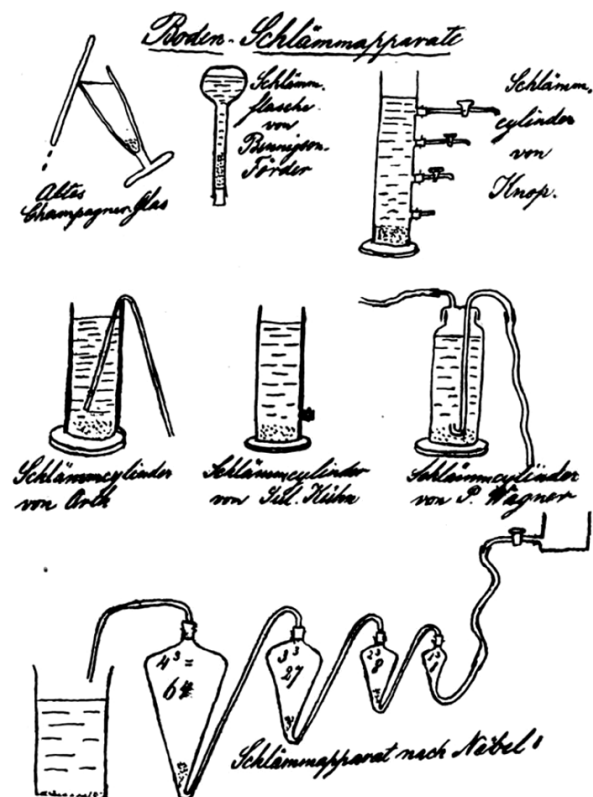 Boden-Schlämmapparate
Altes
Champagner Glas
Schlämm-
flasche
von
Bennigsen-
Förder
Schlämm-
cylinder
von
Knop.
Schlämmcylinder
von Orth
Schlämmcylinder
von Jul. Kühn
Schlämmcylinder
von P. Wagner
4³ =
64
3³
27
2³
8
1³
Schlämmapparat nach Nöbel